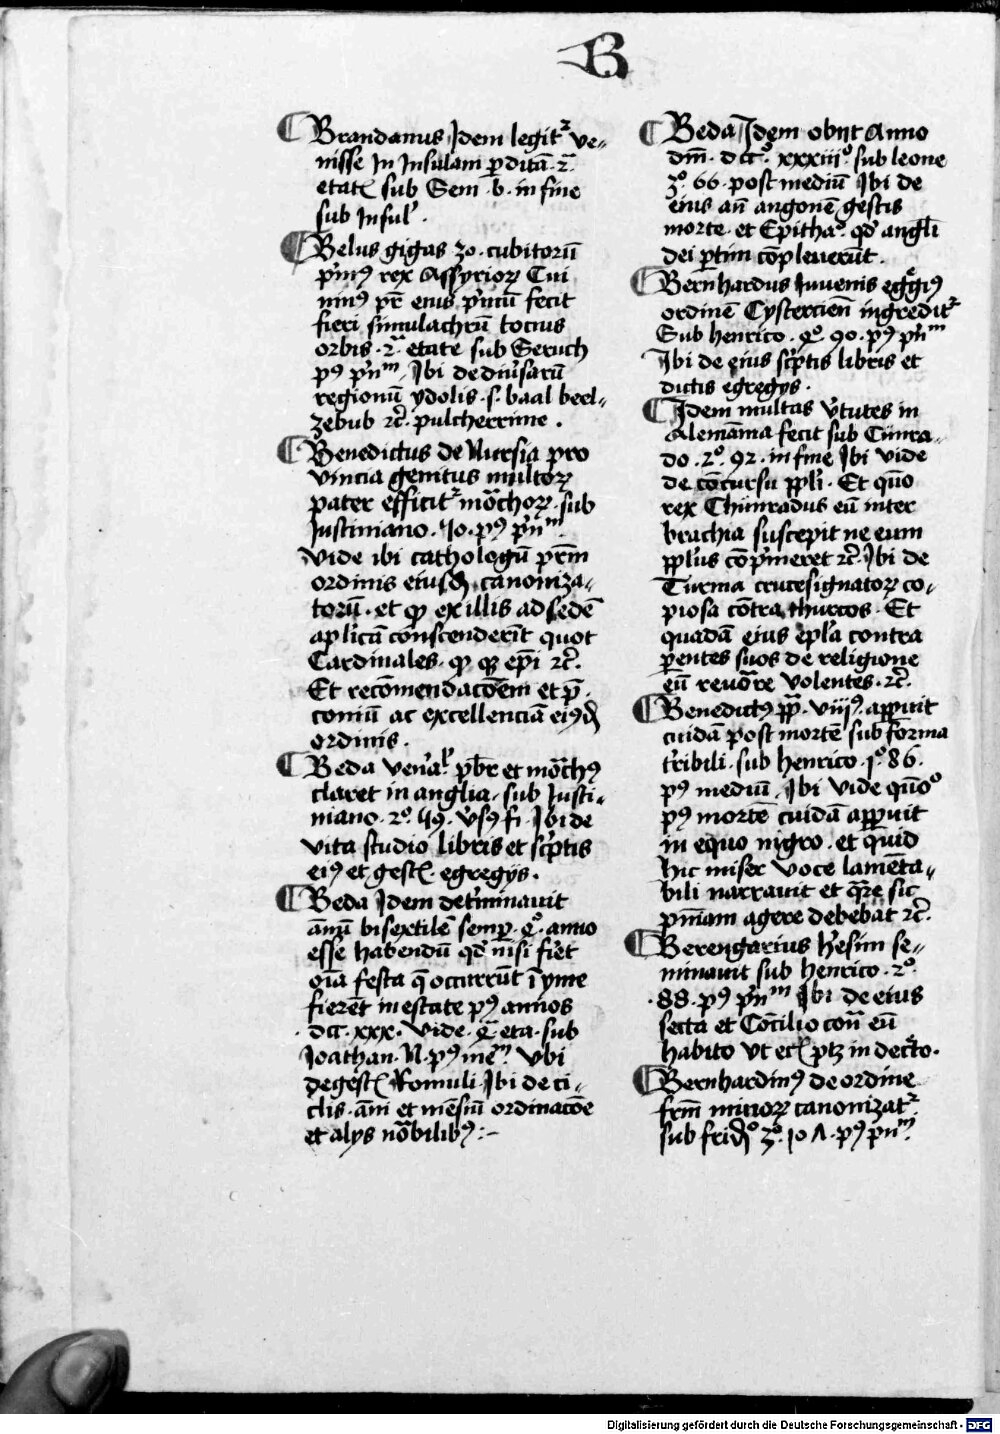 B
Brandanus Idem legitr ve-
nisse In Insulam perditā. 2a
etate sub Sem. b. in fine
sub Insul'.
Belus gigas 30. cubitorū
prim9 rex Assyriorꝝ Cui
nin9 pr̄ eius primū fecit
fieri simulachrū tocius
orbis. 2a etate sub Seruch
p9 prin m, Ibi de diūsarū
regionū ydolis. s. baal beel-
zebub 2c̄. pulcherrime.
Benedictus de Nursia pro
vincia genitus multorꝝ
pater efficitr mōchorꝝ. sub
Iustiniano. 40. p9 prin m.
vide ibi cathologū prīm
ordinis eiusdē canoniza-
torū. et quot ex illis ad sedē
aplicā conscenderīt quot
Cardinales. quot epī 2c̄.
Et recōmendacōem et p̄-
coniū ac excellenciā ei9dē
ordinis.
Beda venal' pbr̄ et mōch9
claret in anglia. sub Iusti-
niano. 2o. 49. vs9 fi. Ibi de
vita studio libris et sc̄ptis
ei9 et gest. egregijs.
Beda Idem determinauit
annū bisextilē semper. 4o. anno
esse habendū qd̄ nisi fiēt
oīa festa que occurrūt ī yme
fierēt in estate p9 annos
.dcc. xxx. vide. 4a eta. sub
Ioathan. N. p9 me m. vbi
de gest. Romuli. Ibi de ci-
clis. āni et mēsiū ordinacōe
et alys nōbilib9:-
Beda Idem obijt Anno
dm̄. dcco. xxxiiio. sub leone
3o. 66. post mediū Ibi de
eius an̄ angonē gestis
morte. et Epitha. qd̄ angli
dei partim cōpleuerūt.
Bernhardus Iuuenis egregi9
ordinē Cystercien̄ ingreditr
Sub henrico. 4o. 90. p9 prin m
Ibi de eius sc̄ptis libris et
dictis egregys.
Idem multas v̄tutes in
Alemānia fecit sub Cūnra-
do. 2o. 92. in fine Ibi vide
de cōcursu ppli. Et quō
rex Chūnradus eū inter
brachia suscepit ne eum
pplus cōprimeret 2c̄. Ibi de
Turma crucesignatorꝝ co-
piosa cōtra thurcos. Et
quadā eius epl'a contra
parentes suos de religione
eū reuocāre volentes. 2c̄.
Benedict9 pp̄. viii9. apparuit
cuidā post mortē sub forma
terribili. sub henrico. 1o. 86.
p9 mediū, Ibi vide quōo
p9 mortē cuidā apparuit
in equo nigro. et quid
hic miser voce lamēta-
bili narrauit et quare sic
pn̄iam agere debebat 2c̄.
Berengarius hēsim se-
minauit sub henrico. 2o.
.88. p9 prin m Ibi de eius
secta et Cōcilio con̄ eū
habito vt ecl. ptz in decto.
Bernhardin9 de ordine
frm̄ minorꝝ canonizatr
sub frido 3o. 107. p9 prin m
Digitalisierung gefördert durch die Deutsche Forschungsgemeinschaft - DFG